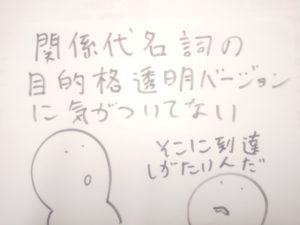 関係代名詞の
目的格透明バージョン
に気がついてない
そこに到達
しがたいんだ